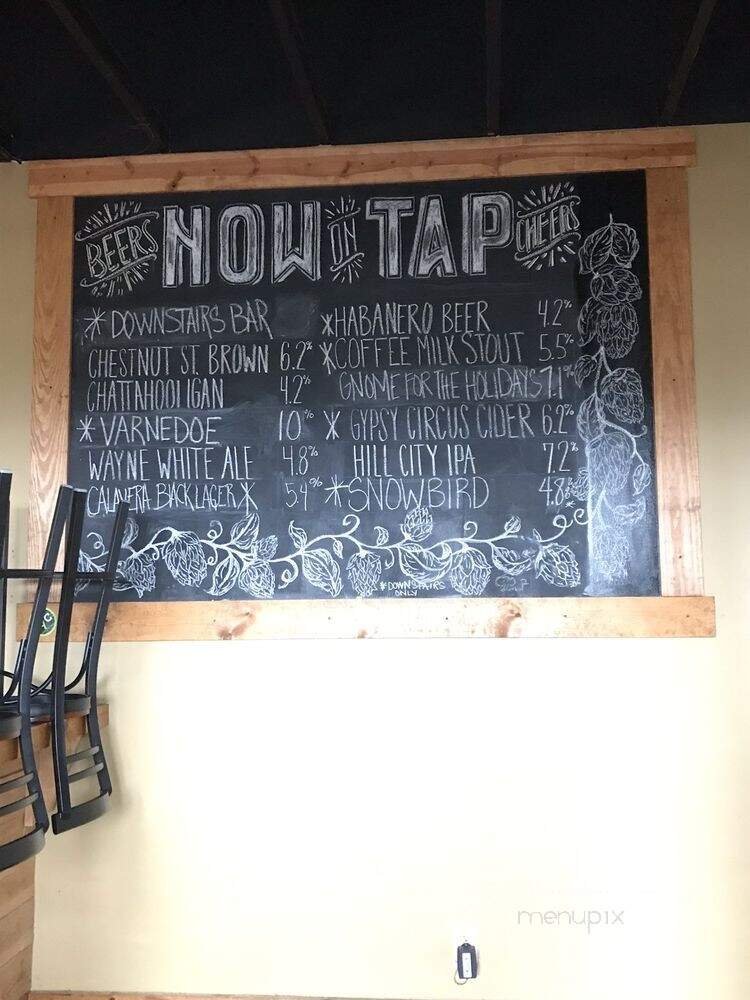 BEERS NOW ON TAP CHEERS
* DOWNSTAIRS BAR
CHESTNUT ST. BROWN 6.2%
CHATTAHOOLIGAN 4.2%
* VARNEDOE 10%
WAYNE WHITE ALE 4.8%
CALAVERA BLACK LAGER * 5.4%
* HABANERO BEER 4.2%
* COFFEE MILK STOUT 5.5%
GNOME FOR THE HOLIDAYS 7.1%
* GYPSY CIRCUS CIDER 6.2%
HILL CITY IPA 7.2%
* SNOWBIRD 4.8%
* DOWNSTAIRS
ONLY
menupix